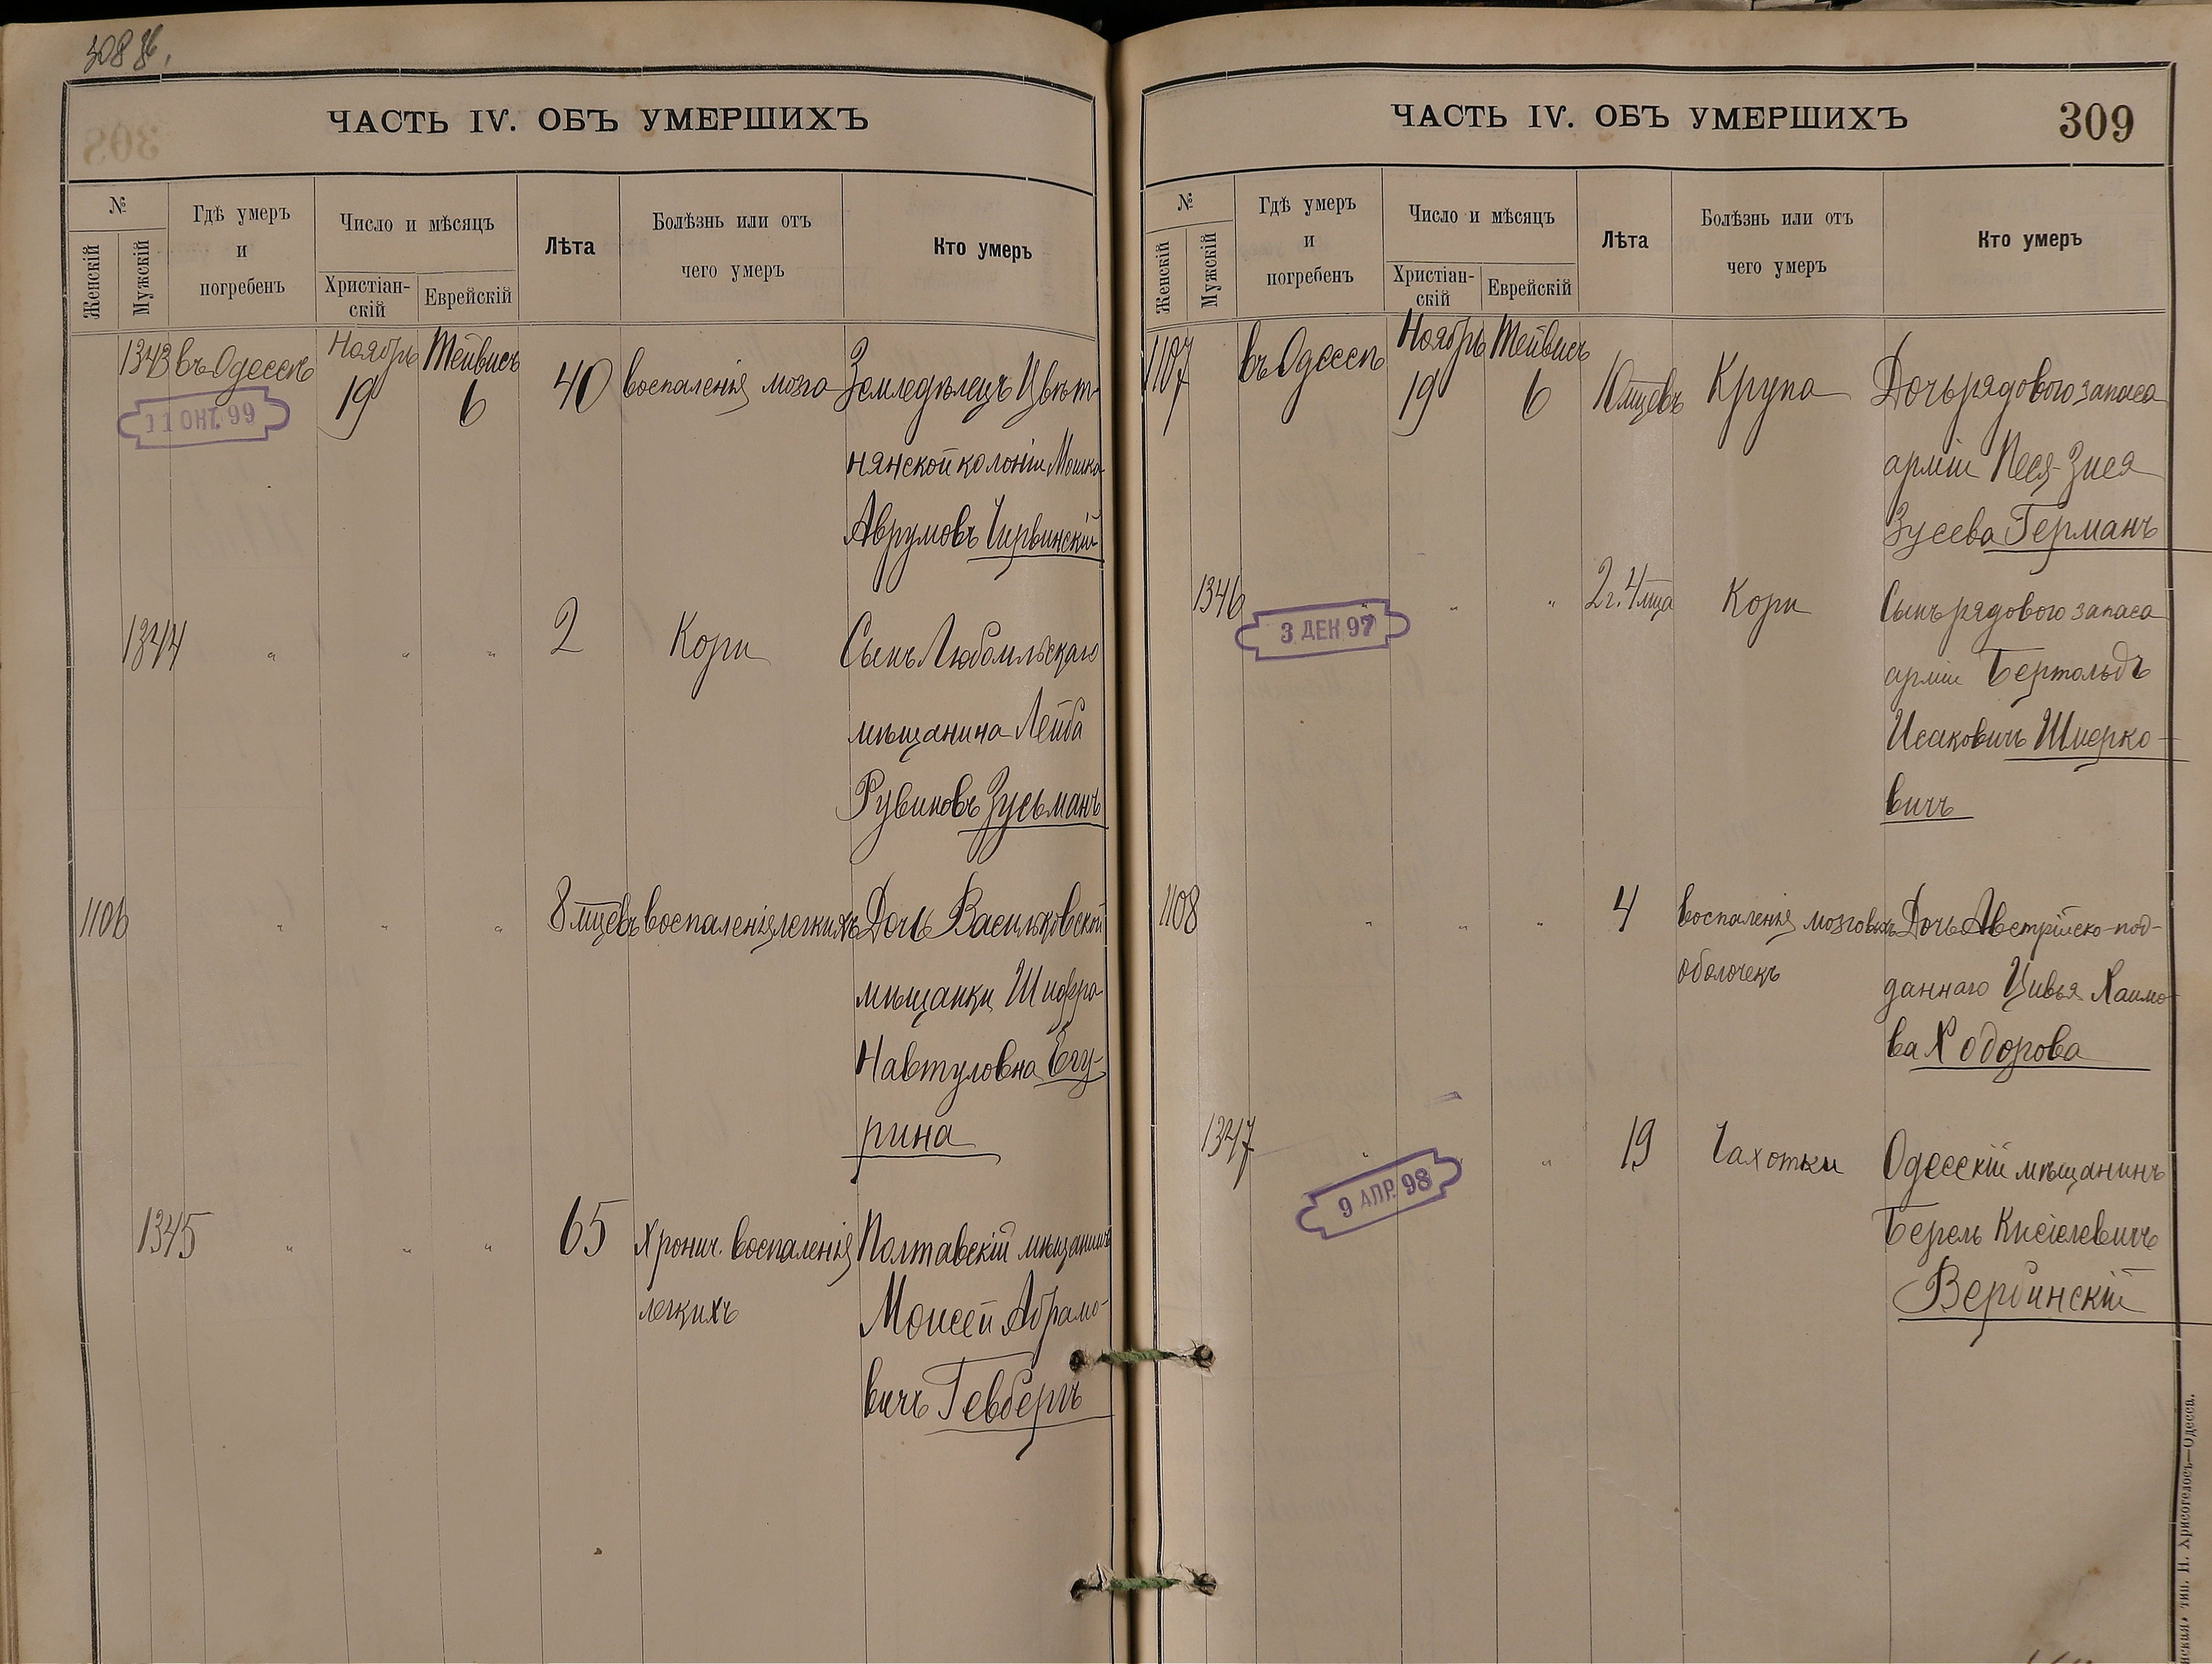 308 об.
ЧАСТЬ IV. ОБЪ УМЕРШИХЪ
№
Женскій
Мужскій
Гдѣ умеръ
и
погребенъ
Число и мѣсяцъ
Христіан-
скій
Еврейскій
Лѣта
Болѣзнь или отъ
чего умеръ
Кто умеръ
1343 въ Одессѣ Ноябрь 19 Тейвисъ 6 40 воспаленія мозга Земледѣлецъ Цвѣт-
11 ОКТ. 99
нянской колоніи Мошка
Аврумовъ Червинскій
1344 " " " 2 Кори Сынъ Любомльскаго
мѣщанина Лейба
Рувиновъ Зусьманъ
1106 " " " 8 мцевъ воспаленія легкихъ Дочь Васильковской
мѣщанки Шифра
Навтуловна Егу-
рина
1345 " " " 65 Хронич. воспаленія Полтавскій мѣщанинъ
легкихъ Моисей Абрамо-
вичъ Гевбергъ
ЧАСТЬ IV. ОБЪ УМЕРШИХЪ
309
№
Женскій
Мужскій
Гдѣ умеръ
и
погребенъ
Число и мѣсяцъ
Христіан-
скій
Еврейскій
Лѣта
Болѣзнь или отъ
чего умеръ
Кто умеръ
1107 въ Одессѣ Ноябрь 19 Тейвисъ 6 10 мцевъ Крупа Дочь рядового запаса
арміи Песя-Зися
Зусева Германъ
1346 " " " 2 г. 4 мца Кори Сынъ рядового запаса
3 ДЕК 97
арміи Бертольдъ
Исаковичъ Шмерко-
вичъ
1108 " " " 4 воспаленія мозговыхъ Дочь Австрійско-под-
оболочекъ даннаго Цивья Хаимо-
ва Ходорова
1347 " " " 19 Чахотки Одесскій мѣщанинъ
9 АПР. 98
Берель Кисіелевичъ
Вербинскій
тип. И. Хрисогелосъ—Одесса.